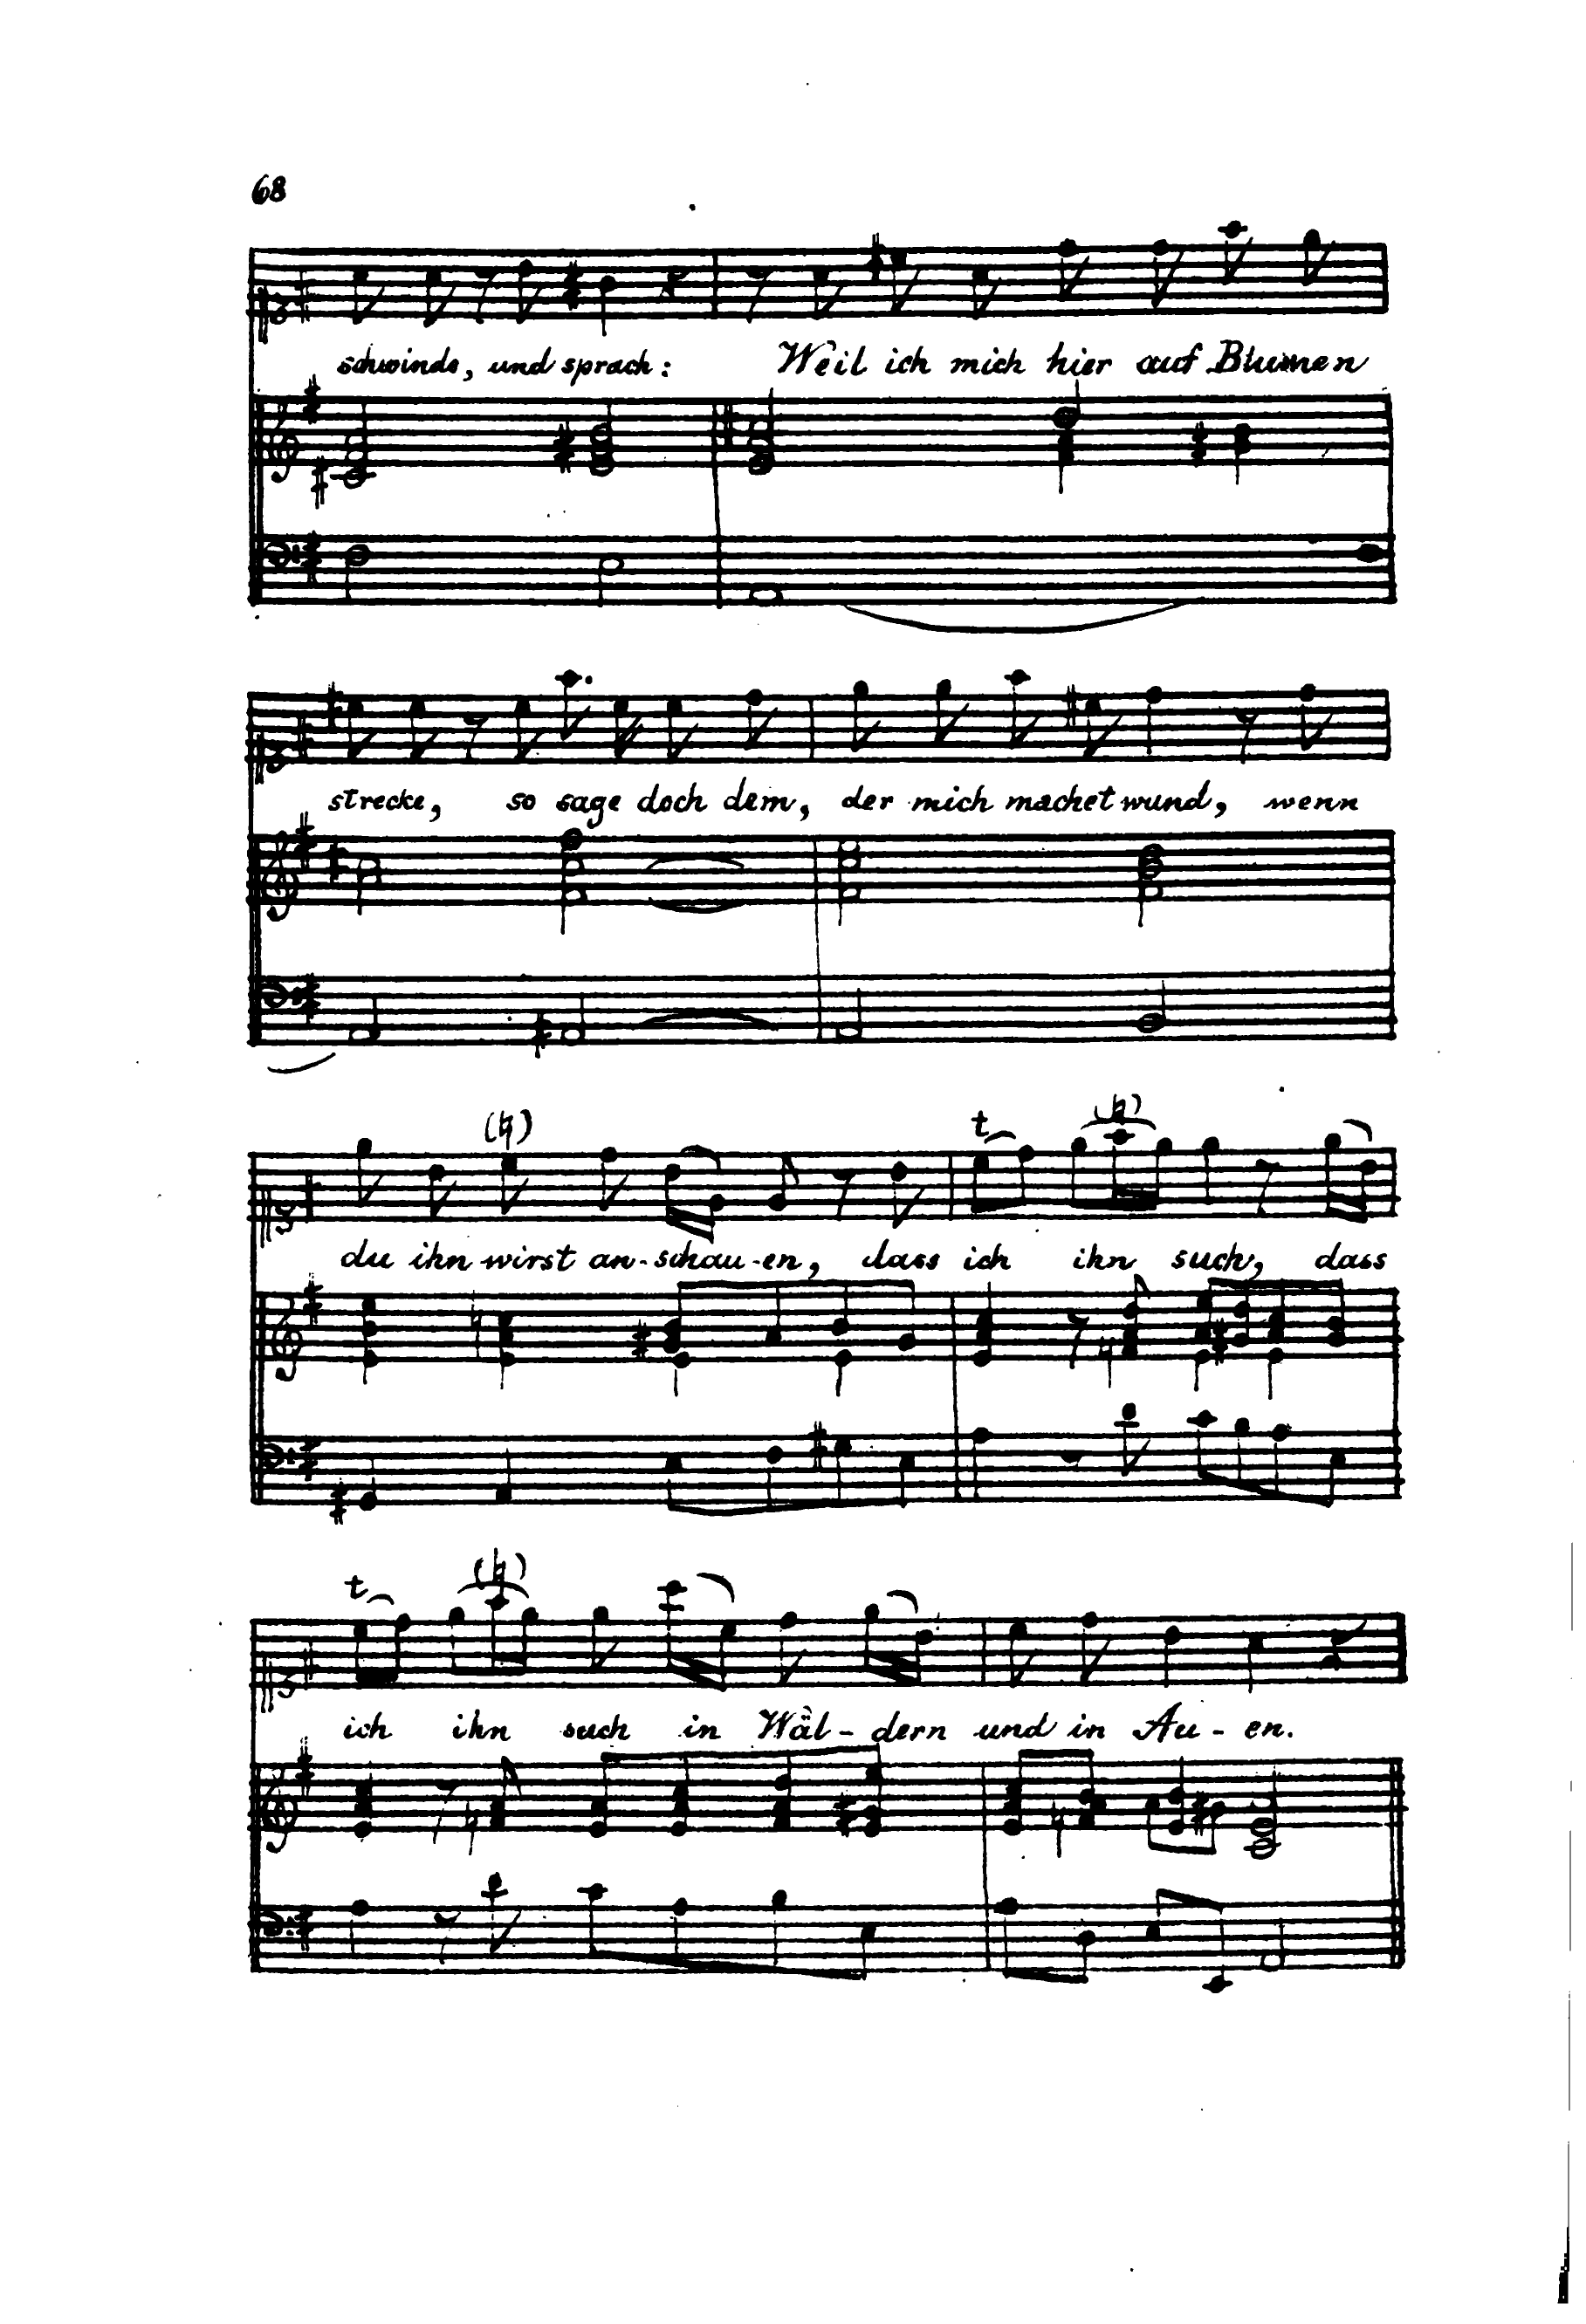 68
schwinde, und sprach: Weil ich mich hier auf Blumen
strecke, so sage doch dem, der mich machet wund, wenn
(♮) t (♮)
du ihn wirst an-schau-en, dass ich ihn such, dass
t (♮)
ich ihn such in Wäl-dern und in Au-en.